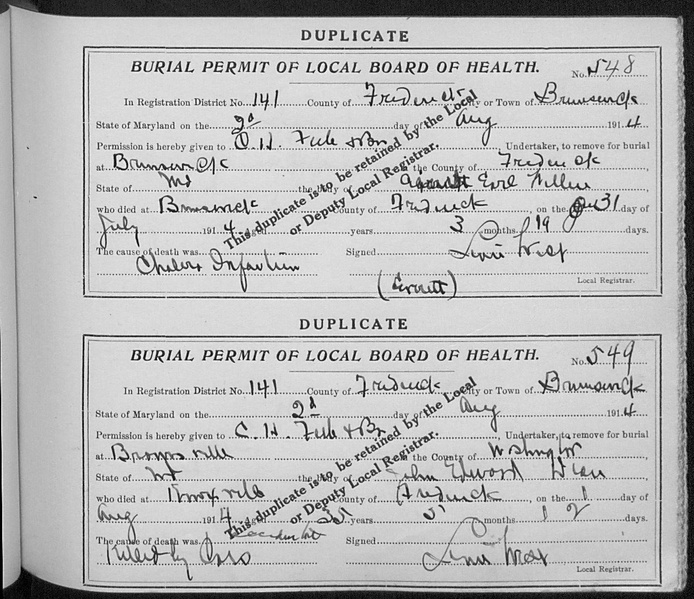 DUPLICATE
BURIAL PERMIT OF LOCAL BOARD OF HEALTH.
No. 548
In Registration District No. 141 County of Frederick City or Town of Brunswick
State of Maryland on the 2d day of Aug 1914
Permission is hereby given to C. H. Feete & Bro Undertaker, to remove for burial
at Brunswick in the County of Frederick
State of Md the body of Earl
who died at Brunswick County of Frederick, on the 31 day of
July 1914 aged years 3 months 19 days.
The cause of death was Signed
Cholera Infantum
(Everett) Local Registrar.
This duplicate is to be retained by the Local
or Deputy Local Registrar.
DUPLICATE
BURIAL PERMIT OF LOCAL BOARD OF HEALTH.
No. 549
In Registration District No. 141 County of Frederick City or Town of Brunswick
State of Maryland on the 2d day of Aug 1914
Permission is hereby given to C. H. Feete & Bro Undertaker, to remove for burial
at Brownsville in the County of Washington
State of Md the body of John Edward
who died at Knoxville County of Frederick, on the 1 day of
Aug 1914 aged years 5 months 12 days.
Accidental
The cause of death was Signed
Killed by Cars
Local Registrar.
This duplicate is to be retained by the Local
or Deputy Local Registrar.